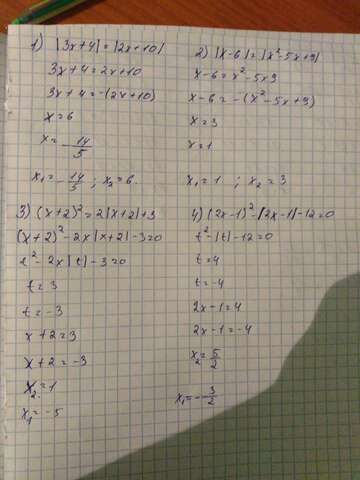 1) |3x+4|=|2x+10|
3x+4=2x+10
3x+4=-(2x+10)
x=6
x=-14/5
x₁=-14/5; x₂=6.
2) |x-6|=|x²-5x+9|
x-6=x²-5x9
x-6=-(x²-5x+9)
x=3
x=1
x₁=1 ; x₂=3
3) (x+2)²=2|x+2|+3
(x+2)²-2x|x+2|-3=0
t²-2x|t|-3=0
t=3
t=-3
x+2=3
x+2=-3
x₂=1
x₁=-5
4) (2x-1)²-|2x-1|-12=0
t²-|t|-12=0
t=4
t=-4
2x-1=4
2x-1=-4
x₂=5/2
x₁=-3/2